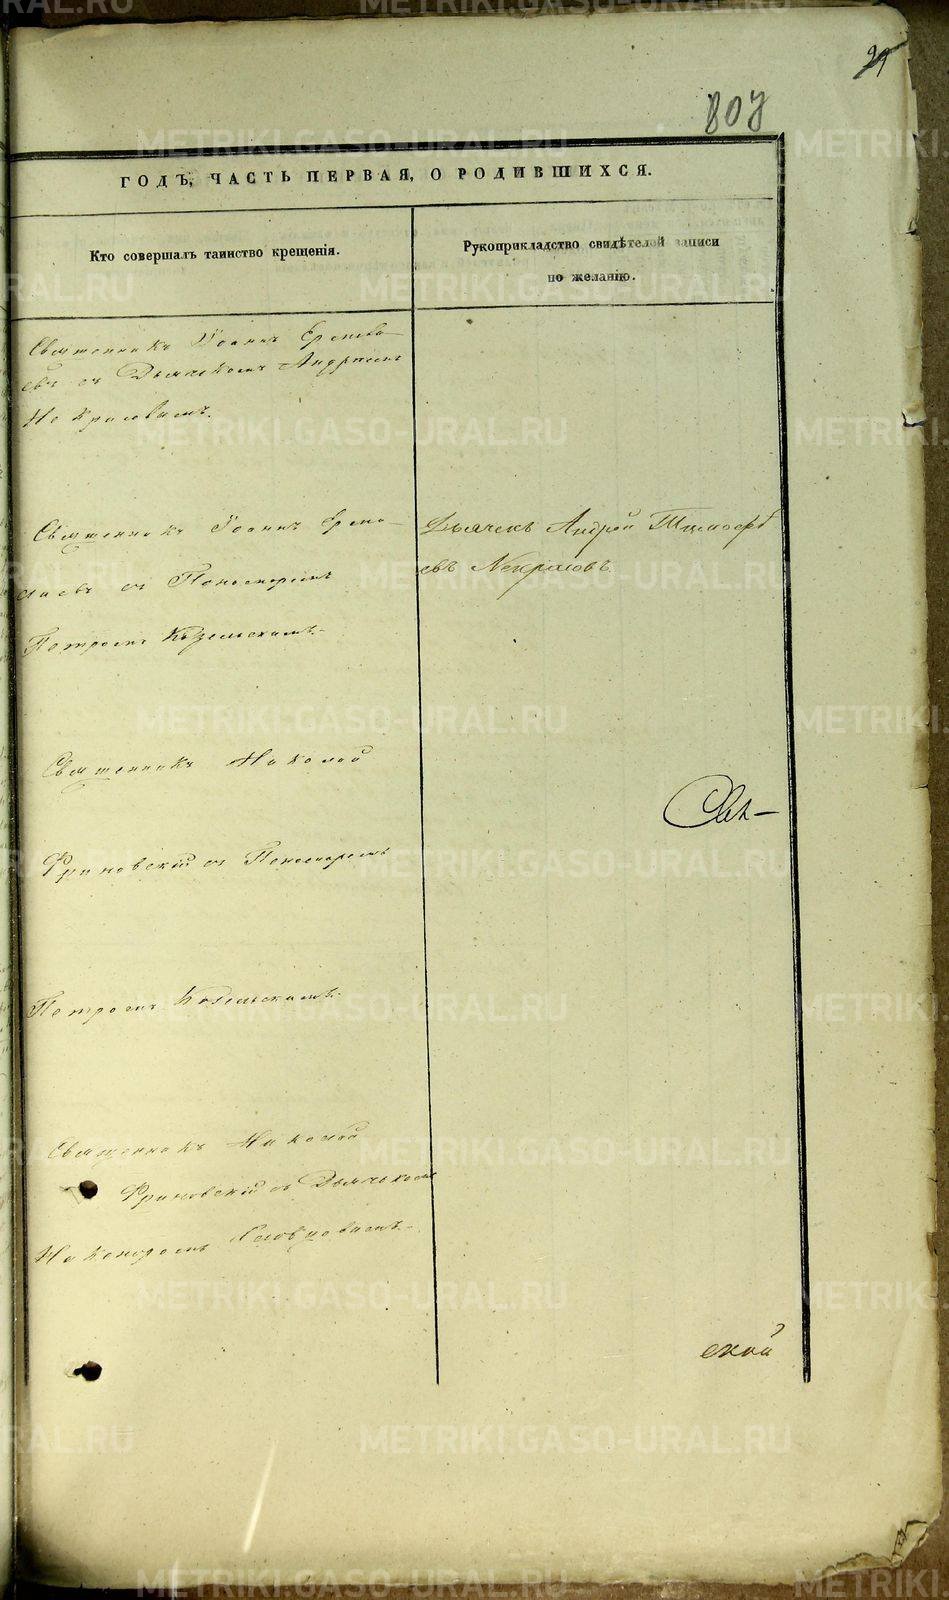 29
807
ГОДЪ, ЧАСТЬ ПЕРВАЯ, О РОДИВШИХСЯ.
Кто совершалъ таинство крещенія.
Рукоприкладство свидѣтелей записи
по желанію.
Священникъ Іоаннъ
евъ съ Дьячкомъ Андреемъ
Некрасовымъ.
Священникъ Іоаннъ
съ Пономаремъ
Петромъ Козельскимъ.
Дьячекъ Андрей Тимофе
евъ Некрасовъ.
Священникъ Николай
съ Пономаремъ
Петромъ Козельскимъ.
Священникъ Николай
съ Дьячкомъ
ской
METRIKI.GASO-URAL.RU